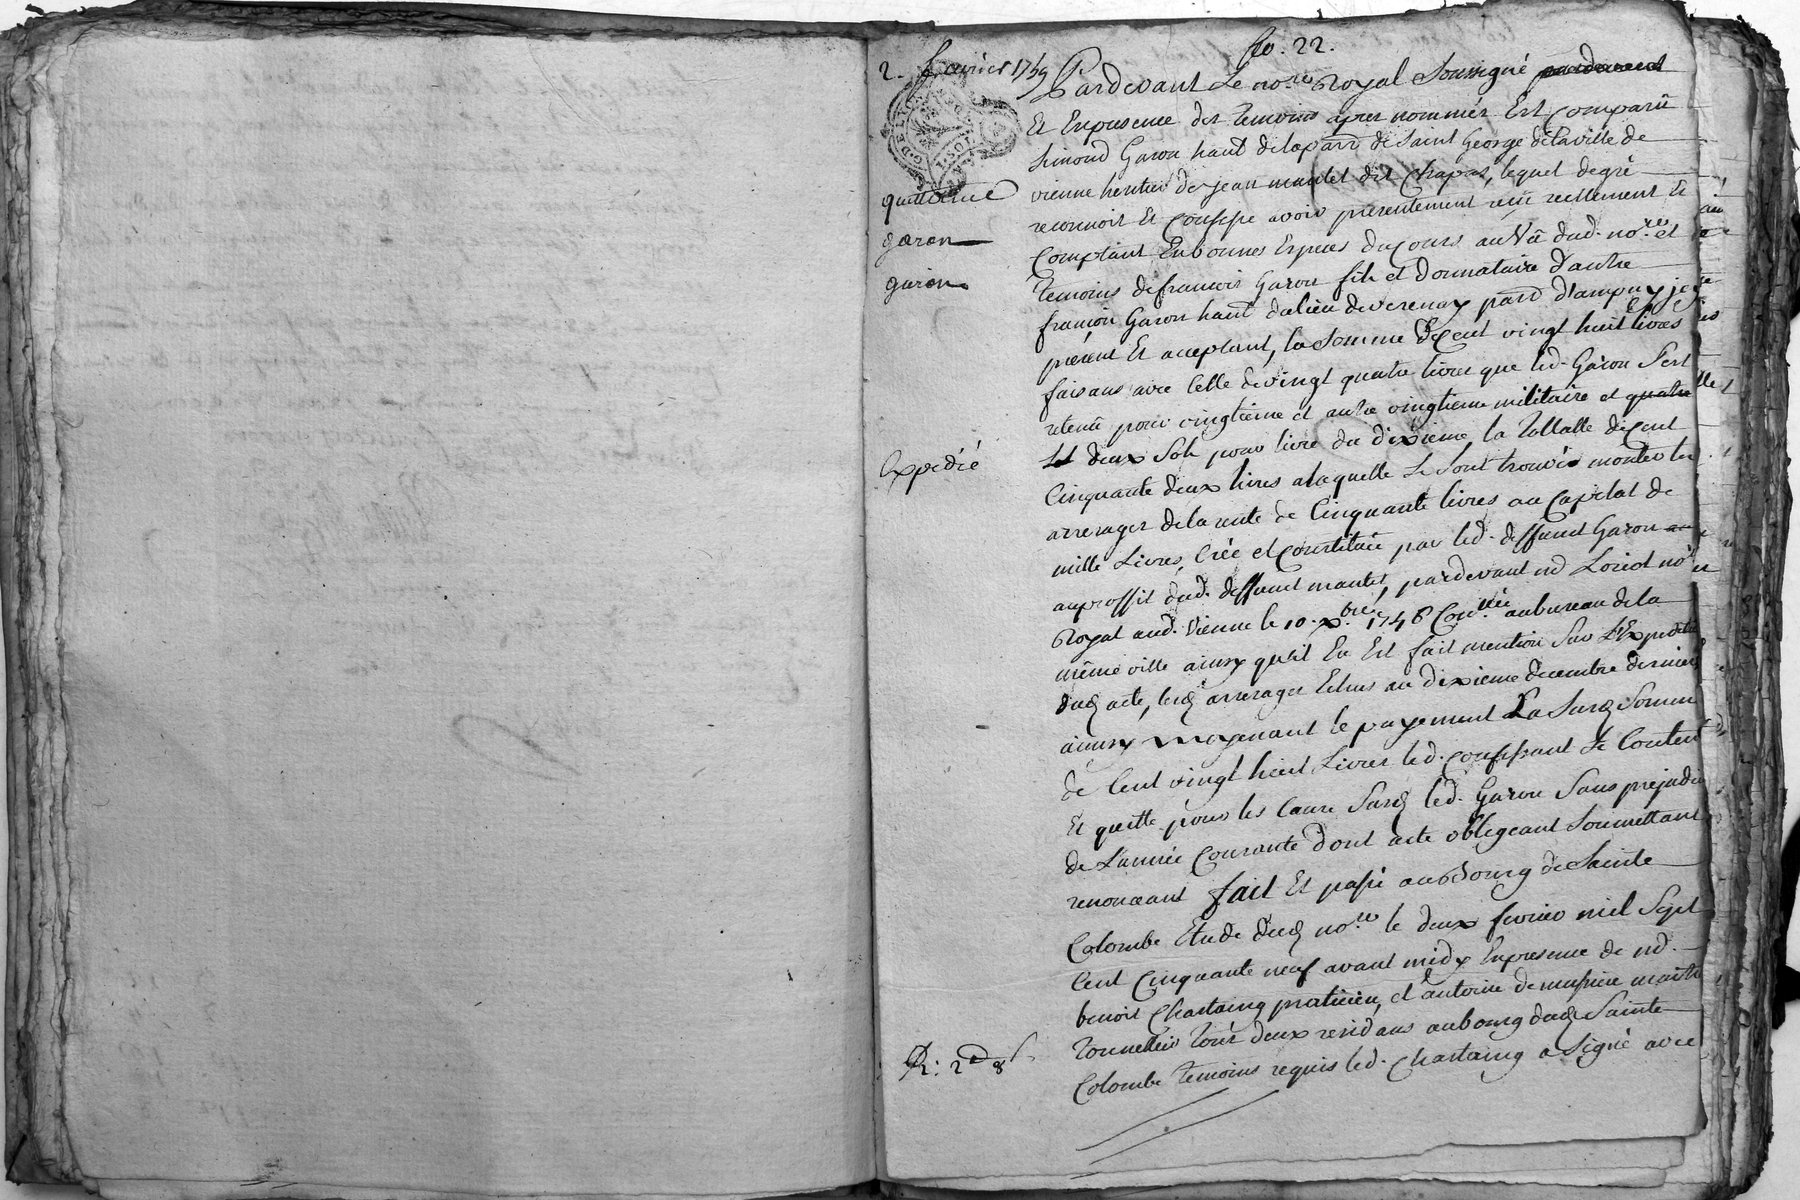 fo. 22.
2. fevrier 1759
quittance
garon
garon
Expedié
R: 2
Pardevant Le no.re Royal Soussigné pardevant
Et Enpresence des temoins apres nommés Est Comparu
Simond Garon hant delapard de Saint George delaville de
vienne heritier de jean mantel dit Chapas, lequel degré
reconnoit Et Confesse avoir presentement reçu reellement Et
Comptant Enbonnes Especes ducours auvû dud. no.re et
temoins defrancois Garon fils et donnataire d'autre
françois Garon hant dulieu deverenay pard d'ampuy jcy
présent Et acceptant, la Somme de Cent vingt huit livres
faisans avec Celle devingt quatre livres que led. Garon S'est
retenu pour vingtieme et autre vingtieme militaire et quatre
deux Sols pour livre du dixieme, la Tottalle de Cent
Cinquante deux livres alaquelle Se Sont trouvés monter les
arrerages delarente de Cinquante livres au Capital de
mille Livres, Créé et Constituée par led. deffunt Garon au
auproffit dud. deffunt mantel, pardevant md Loriot no.re
Royal aud. Vienne le 10. xbre. 1748 Con.llée aubureau dela
même ville ainsy qu'il En Est fait mention Sur L'Expedition
dud acte, lesd arrerages Echus au dixieme decembre dernier
ainsy moyenant le payement La Susd Somme
de Cent vingt huit Livres led. Confessant Se Contente
Et quitte pour les Cause Susd led. Garon Sans prejudice
de L'année Courante dont acte obligeant Soumettant
renonceant fait Et passé aubourg de Sainte
Colombe Etude dud no.re le deux fevrier mil Sept
Cent Cinquante neuf avant midy Enpresence de md.
benoit Chastaing praticien, et antoine demussiere maitre
Tonnellier tous deux residans aubourg dud Sainte
Colombe temoins requis led. Chastaing a Signé avec